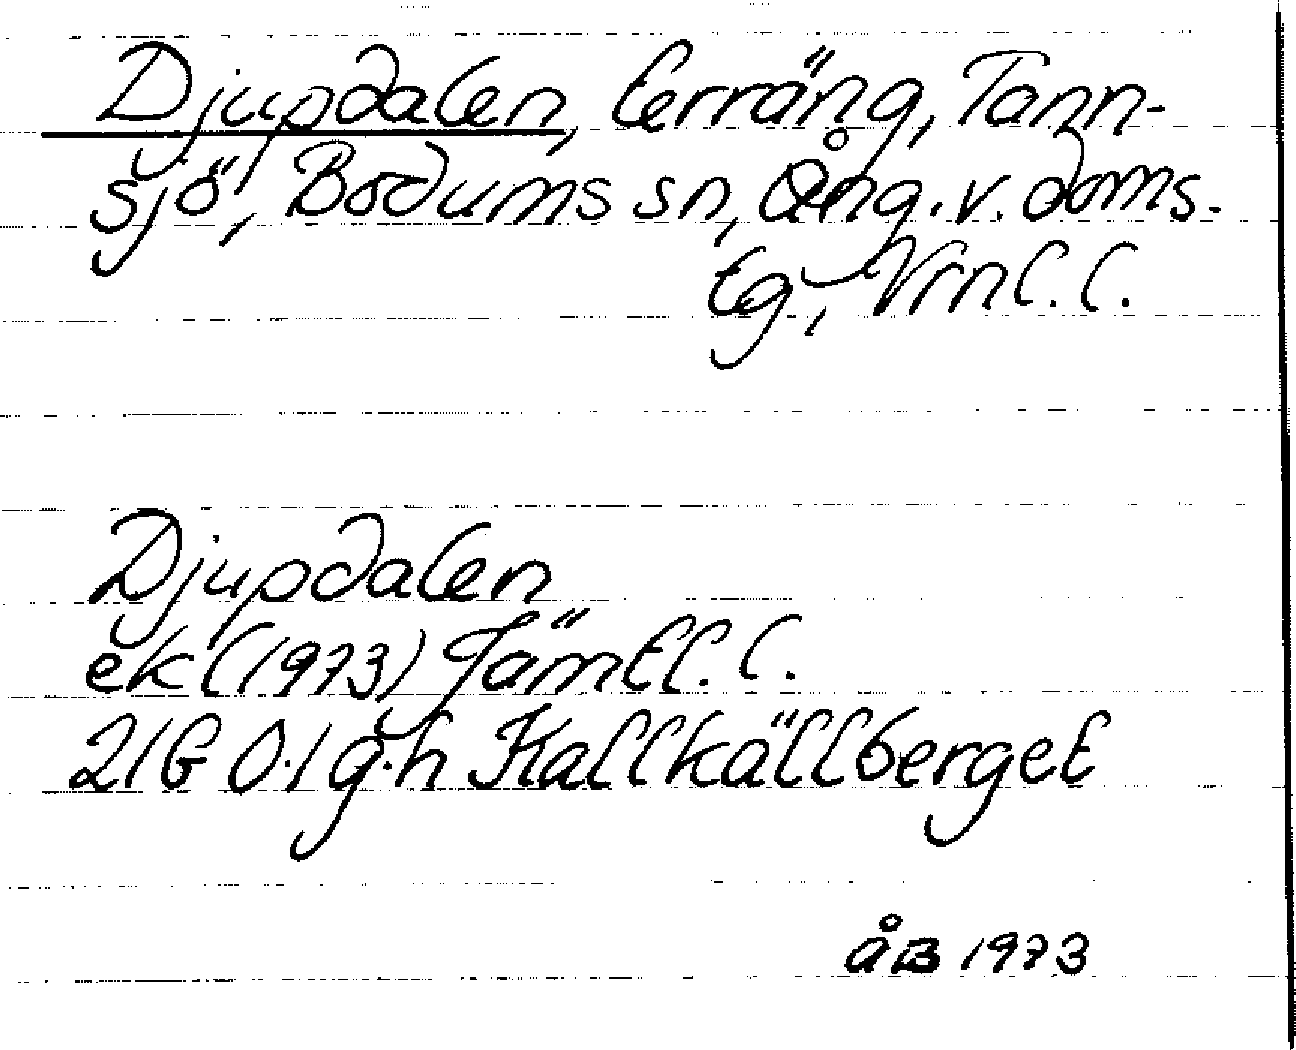 Djupdalen, terräng, Tann-
sjö, Bodums sn, Ång. v. doms.
tg, Vrnl. l.
Djupdalen
ek (1973) Jämtl. l.
21G 0-1 g-h Kallkällberget
åB 1973